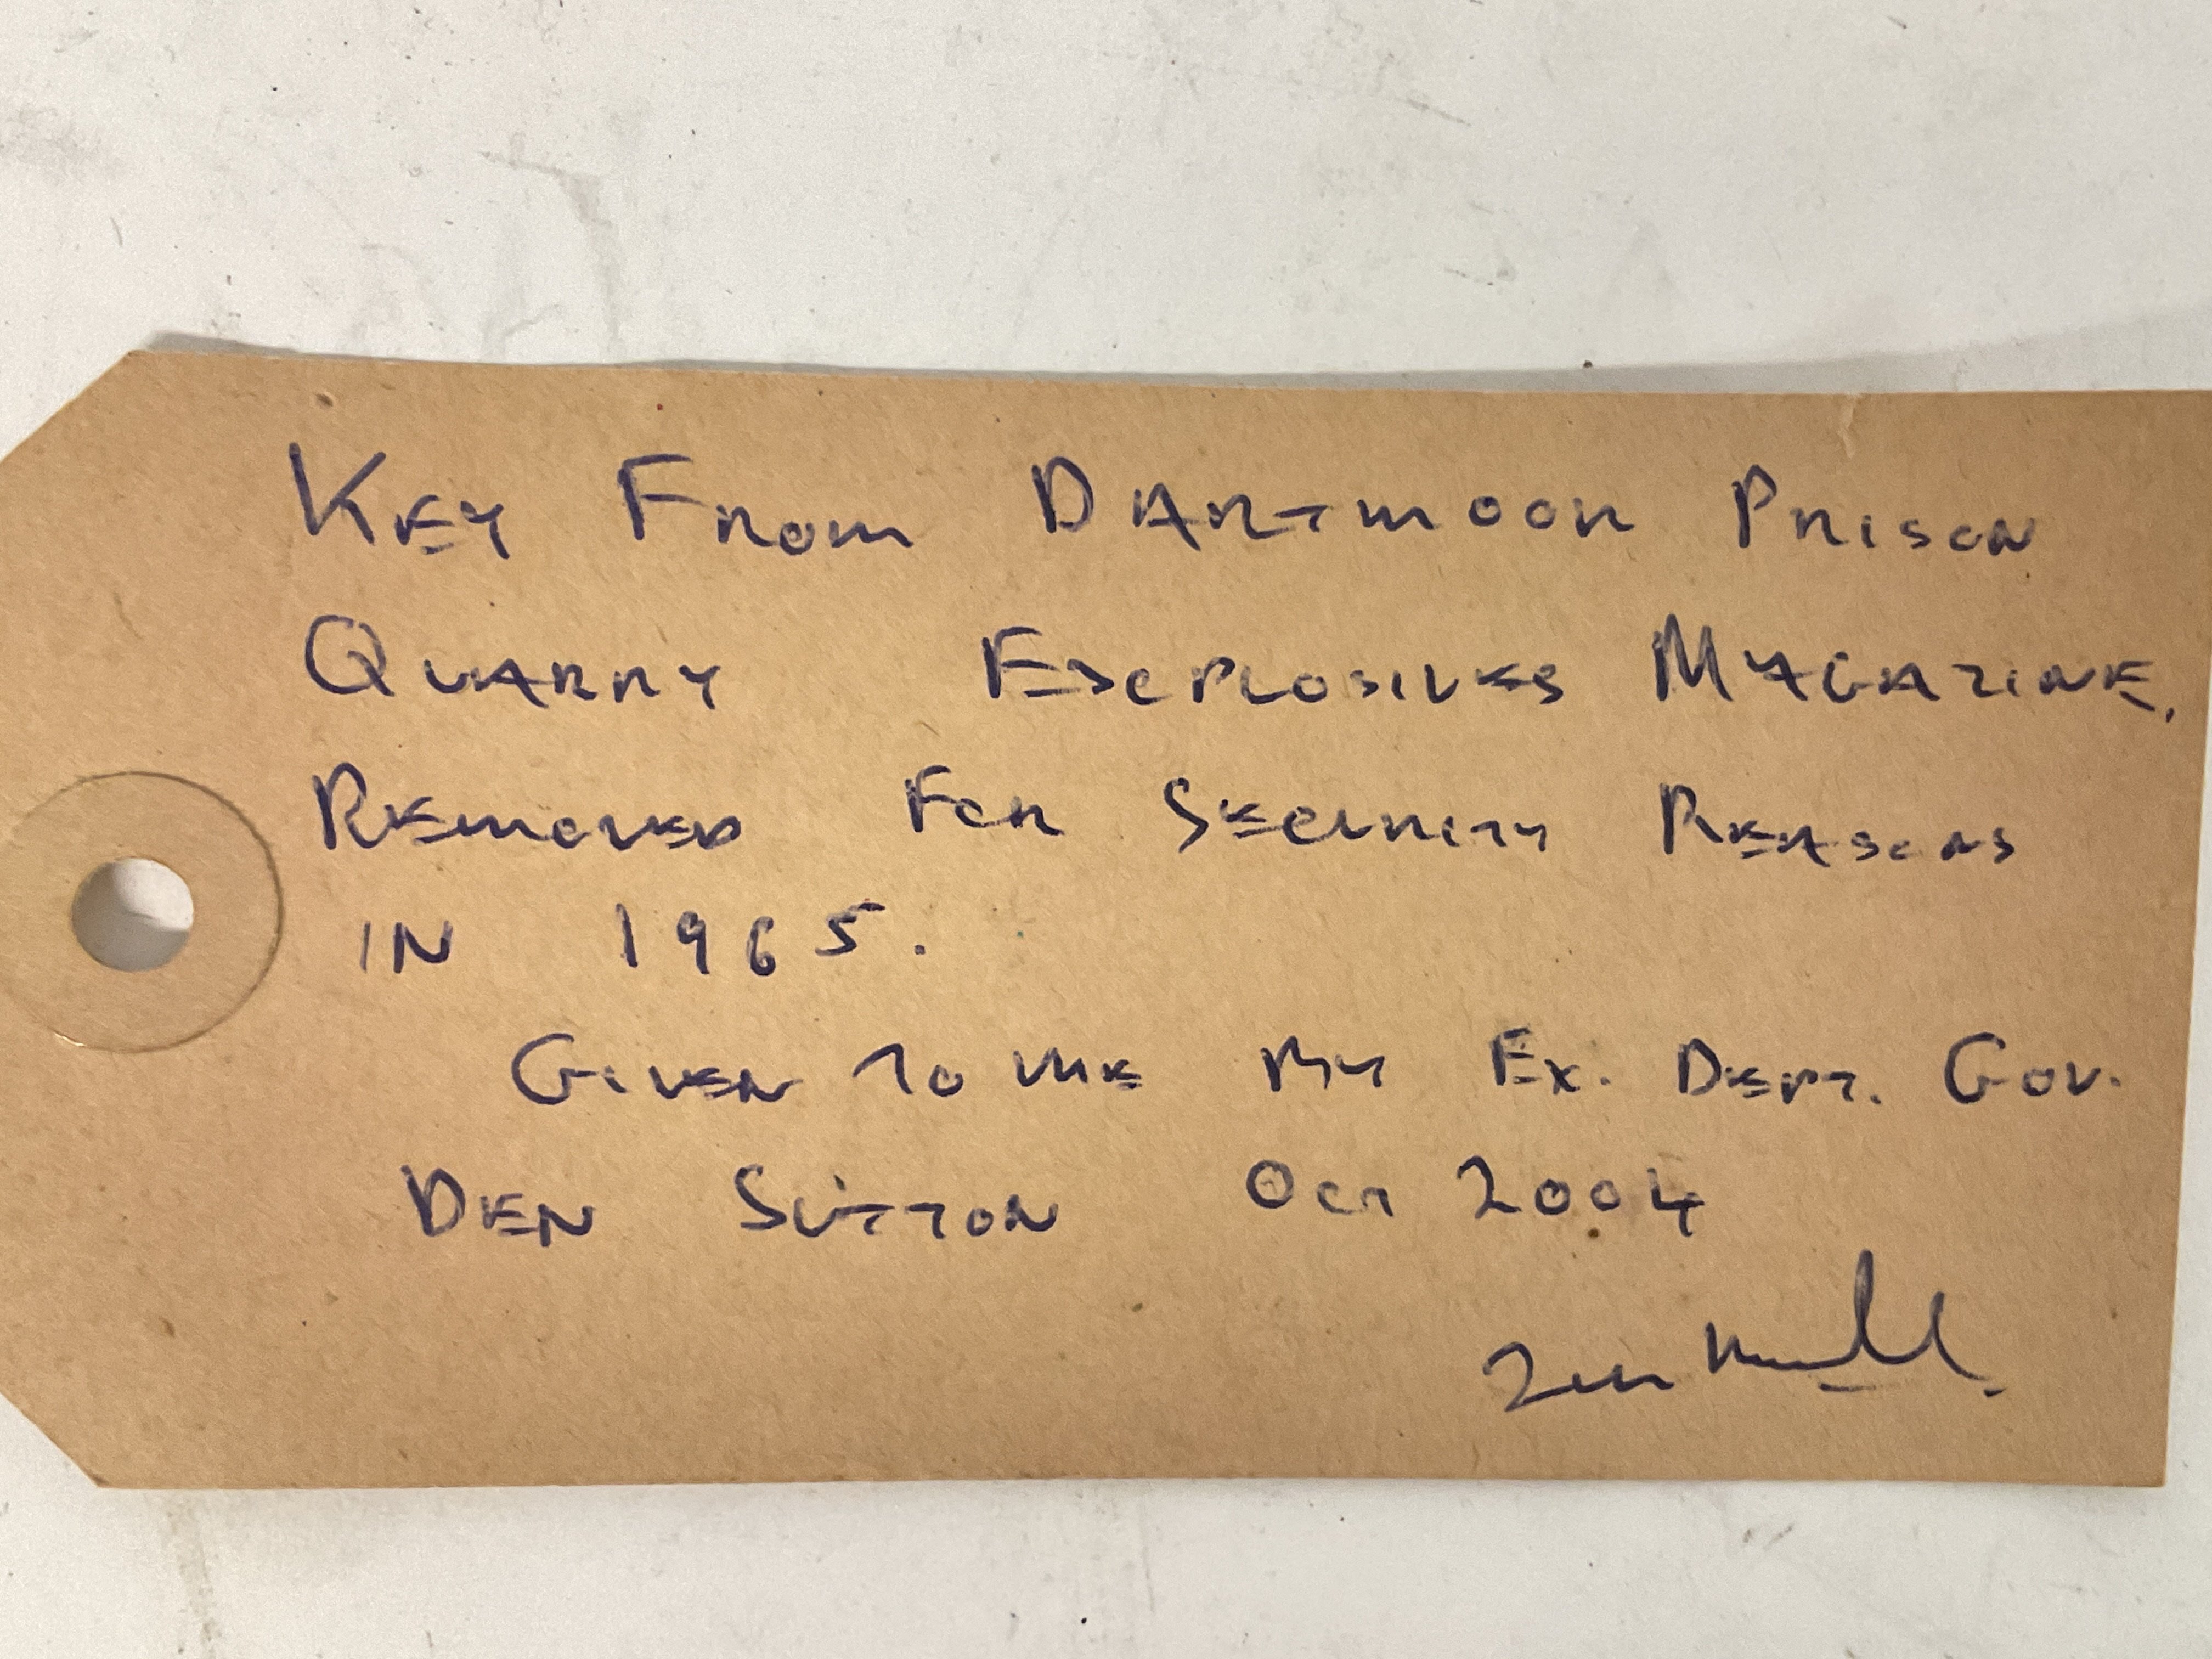 KEY FROM DARTMOOR PRISON
QUARRY EXPLOSIVES MAGAZINE.
REMOVED FOR SECURITY REASONS
IN 1965.
GIVEN TO ME BY EX. DEPT. GOV.
DEN SUTTON OCT 2004